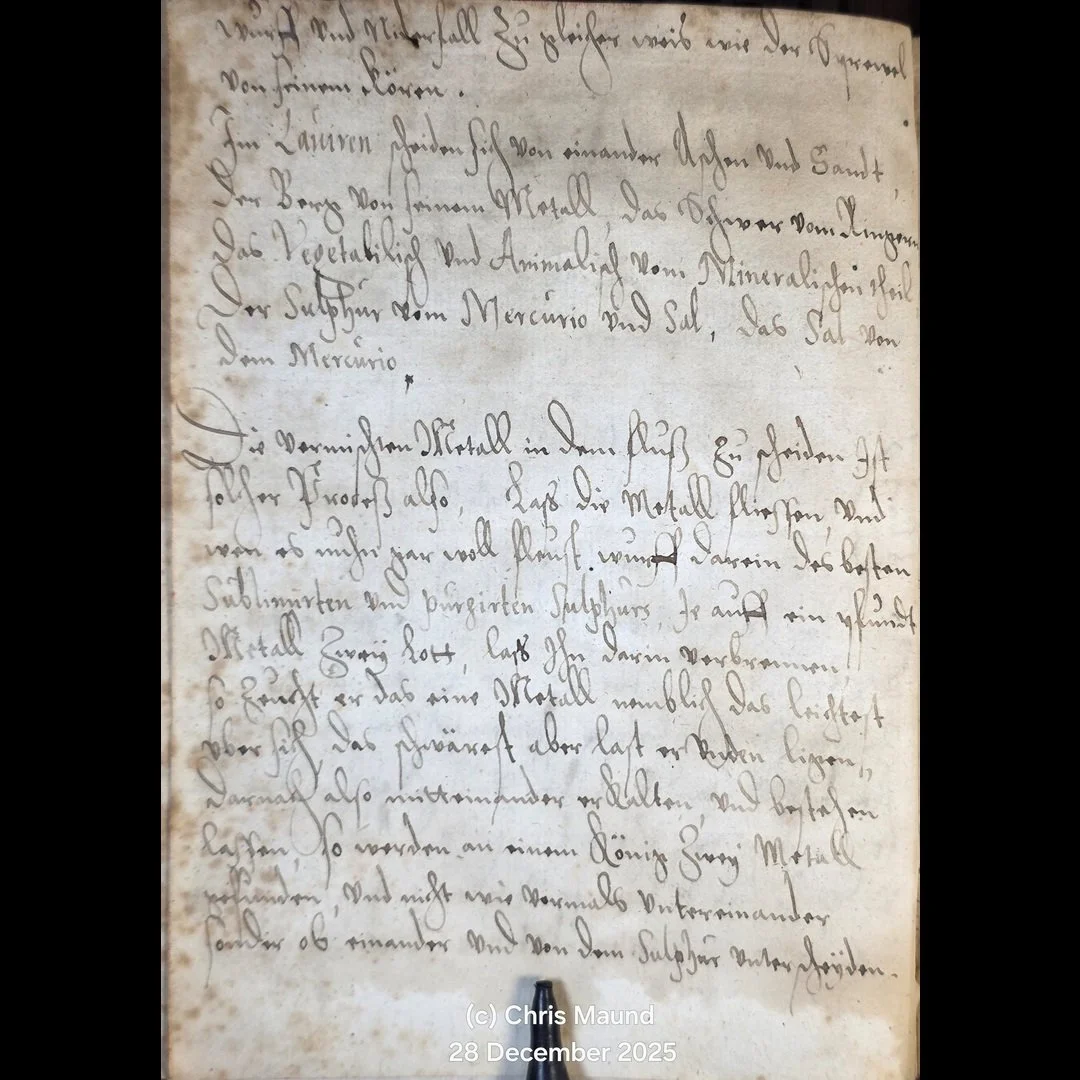 wurff vnd Niderfall Zu gleicher weis wie der Sprewel
von seinem Kören.
Im Lauiren scheiden sich von einander Aschen vnd Sandt,
Der Berg von seinem Metall, das Schwer vom Ringern
Das Vegetabilisch vnd Animalisch vom Mineralischen theil
Der Sulphur vom Mercurio vnd Sal, das Sal von
dem Mercurio,
Die vermischten Metall in dem fluß Zu scheiden Ist
solcher Proceß also, Laß die Metall fliessen, vnd
wen es nuhn gar woll fleust, wurff darein des besten
Sublimirten vnd purgirten Sulphurs, Je auff ein pfundt
Metall Zweÿ Lott, laß Ihn darin verbrennen,
so Zeucht er das eine Metall nemblich das leichtest
vber sich, das schwärest aber last er Vnden ligen,
darnach also mitteinander erkalten, vnd bestehen
lassen, So werden an einem König Zweÿ Metall
gefunden, vnd nicht wie vormals vntereinander
sonder ob einander vnd von dem Sulphur vnterscheÿden.
(c) Chris Maund
28 December 2025